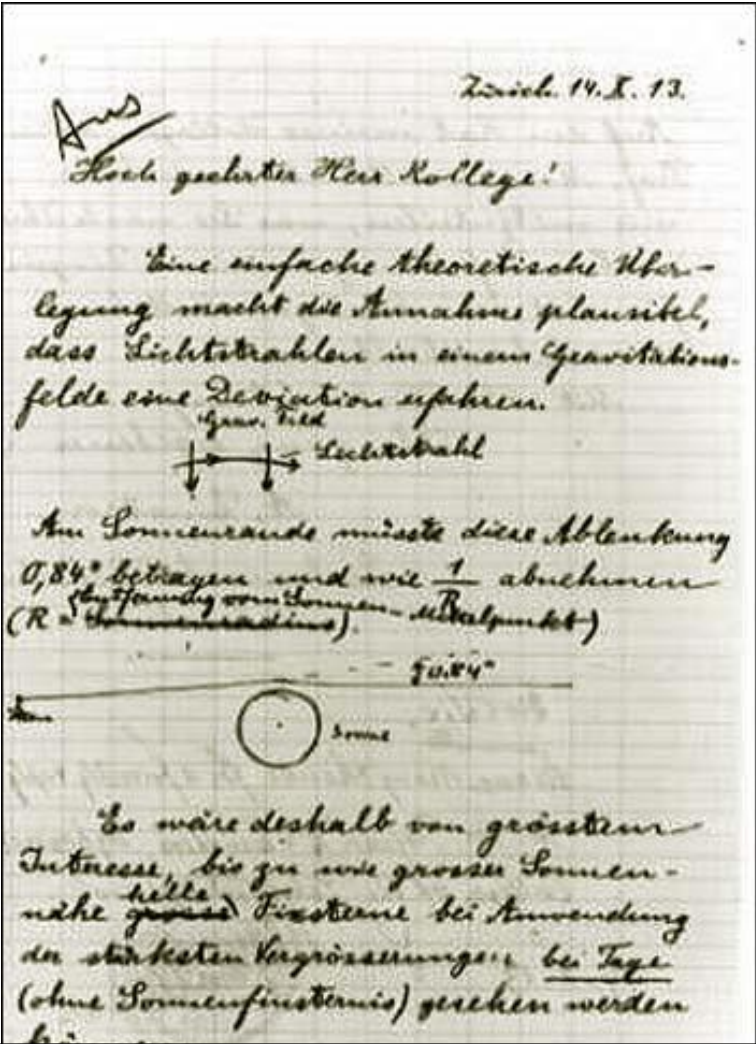 Zürich. 14. X. 13.
Aus
Hoch geehrter Herr Kollege!
Eine einfache theoretische Über-
legung macht die Annahme plausibel,
dass Lichtstrahlen in einem Gravitations-
felde eine Deviation erfahren.
Grav. Feld
Lichtstrahl
Am Sonnenrande müsste diese Ablenkung
0,84" betragen und wie 1/R abnehmen
(R = Sonnenradius Entfernung vom Sonnen-Mittelpunkt)
0.84"
Sonne
Es wäre deshalb von grösstem
Interesse, bis zu wie grosser Sonnen-
nähe grosse helle Fixsterne bei Anwendung
der stärksten Vergrösserungen bei Tage
(ohne Sonnenfinsternis) gesehen werden